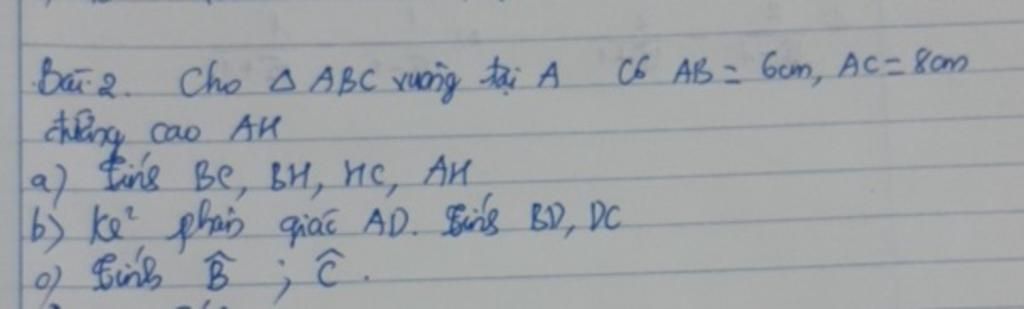 Bài 2. Cho Δ ABC vuông tại A có AB = 6cm, AC = 8cm
đường cao AH
a) Tính BC, BH, HC, AH
b) Kẻ phân giác AD. Tính BD, DC
c) Tính B̂ ; Ĉ.